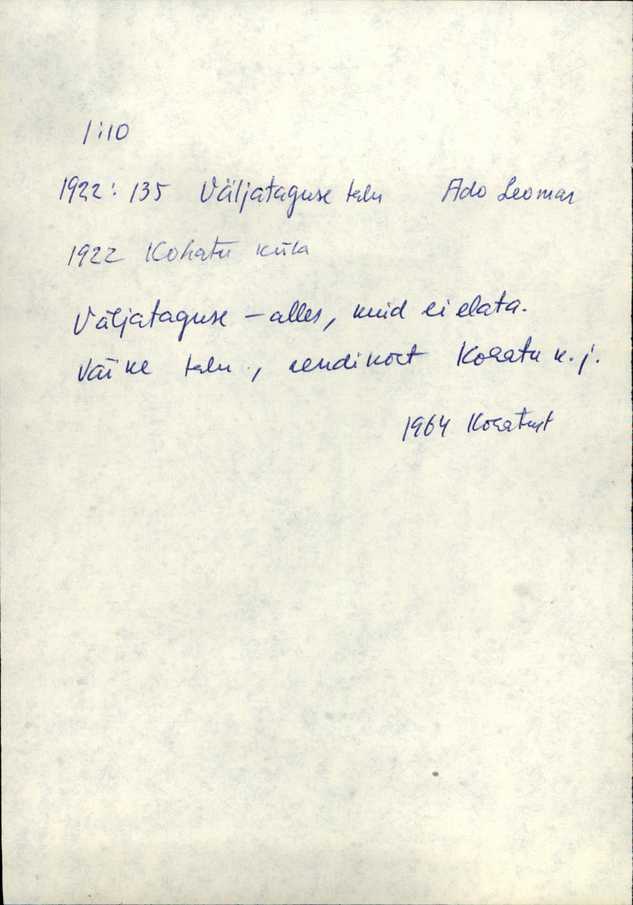 1:10
1922: 135 Väljataguse talu Ado Leomar
1922 Kohatu küla
Väljataguse – alles, kuid ei elata.
Väike talu, rendikoht Kohatu k. j.
1964 Kohatust